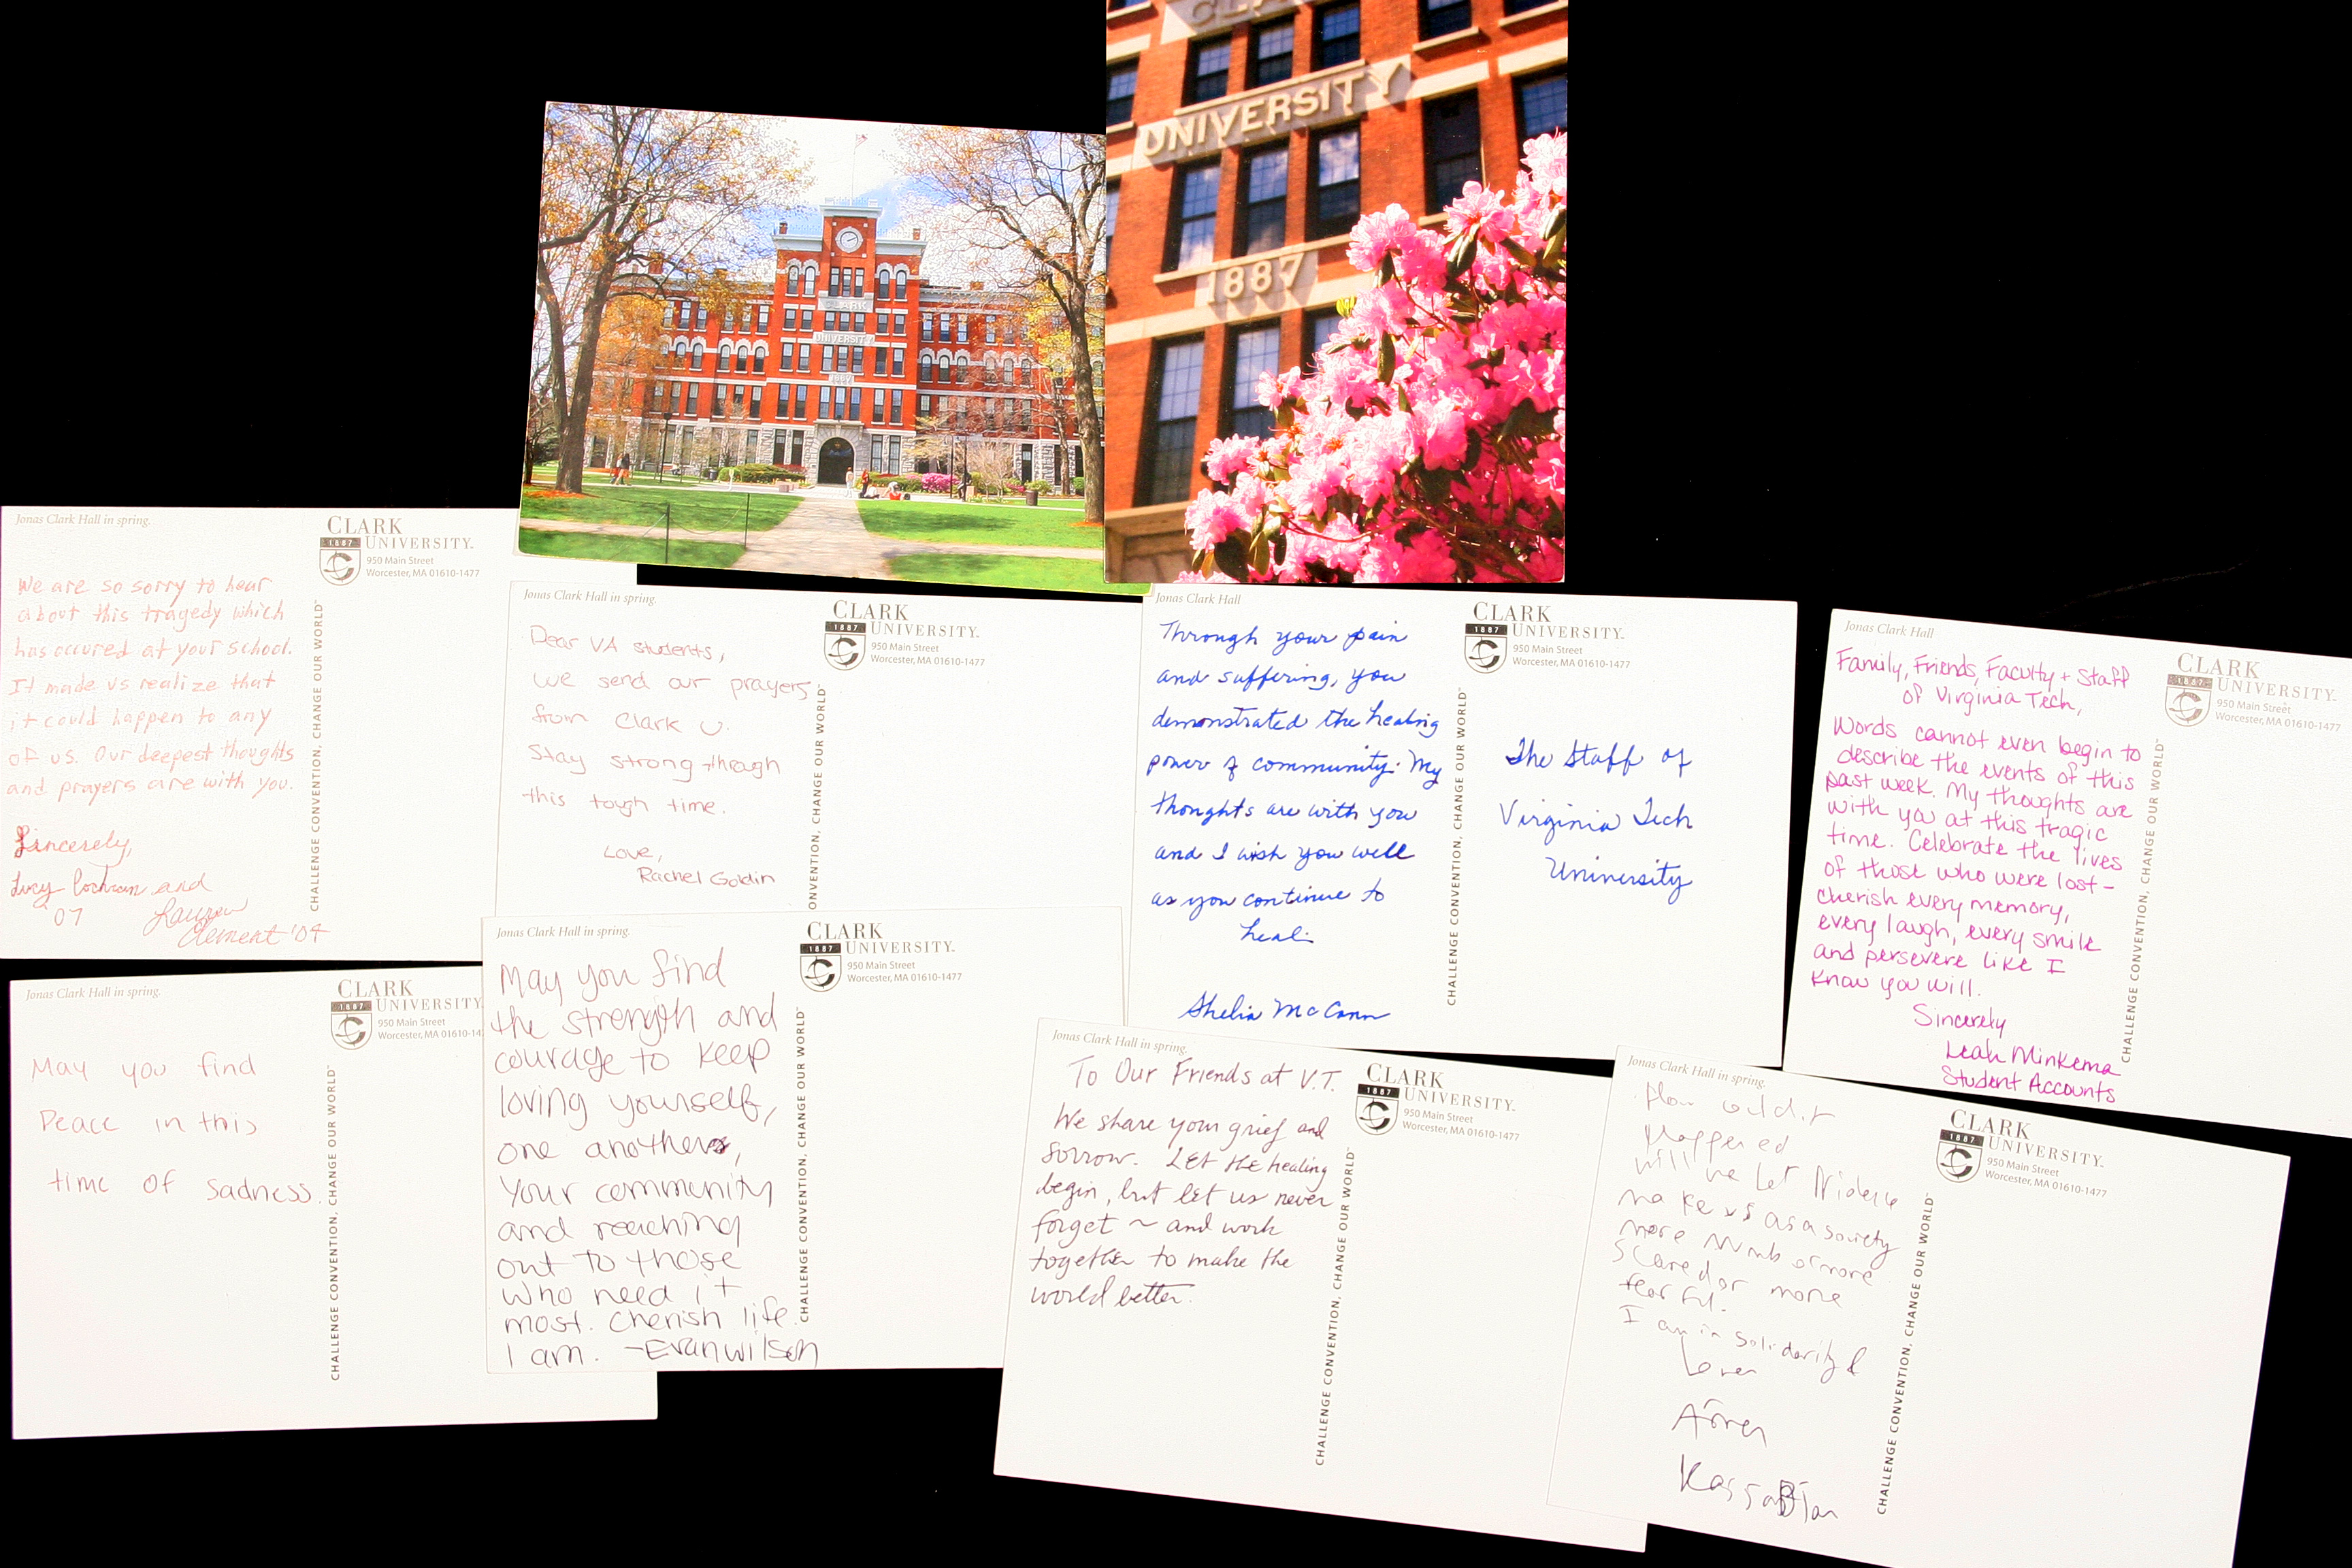 CLARK
UNIVERSITY
1887
CLARK
UNIVERSITY
1887
Jonas Clark Hall in spring.
CLARK
1887 UNIVERSITY
950 Main Street
Worcester, MA 01610-1477
CHALLENGE CONVENTION, CHANGE OUR WORLD™
We are so sorry to hear
about this tragedy which
has occured at your school.
It made us realize that
it could happen to any
of us. Our deepest thoughts
and prayers are with you.
Sincerely,
Lucy Cochran and
'07 Lauren
Clement '04
Jonas Clark Hall in spring.
CLARK
1887 UNIVERSITY™
950 Main Street
Worcester, MA 01610-1477
ONVENTION, CHANGE OUR WORLD™
Dear VA students,
we send our prayers
from Clark U.
Stay strong through
this tough time.
Love,
Rachel Goldin
Jonas Clark Hall
CLARK
1887 UNIVERSITY™
950 Main Street
Worcester, MA 01610-1477
CHALLENGE CONVENTION, CHANGE OUR WORLD™
Through your pain
and suffering, you
demonstrated the healing
power of community. My
thoughts are with you
and I wish you well
as you continue to
heal.
Shelia McCann
The Staff of
Virginia Tech
University
Jonas Clark Hall
CLARK
1887 UNIVERSITY™
950 Main Street
Worcester, MA 01610-1477
CHALLENGE CONVENTION, CHANGE OUR WORLD™
Family, Friends, Faculty + Staff
of Virginia Tech,
Words cannot even begin to
describe the events of this
past week. My thoughts are
with you at this tragic
time. Celebrate the lives
of those who were lost -
cherish every memory,
every laugh, every smile
and persevere like I
know you will.
Sincerely
Leah Minkema
Student Accounts
Jonas Clark Hall in spring.
CLARK
1887 UNIVERSITY
950 Main Street
Worcester, MA 01610-14
CHALLENGE CONVENTION, CHANGE OUR WORLD™
May you find
Peace in this
time of sadness.
Jonas Clark Hall in spring.
CLARK
1887 UNIVERSITY™
950 Main Street
Worcester, MA 01610-1477
CHALLENGE CONVENTION, CHANGE OUR WORLD™
May you find
the strength and
courage to keep
loving yourself,
one another,
your community
and reaching
out to those
who need it
most. Cherish life.
I am. -Evan Wilson
Jonas Clark Hall in spring.
CLARK
1887 UNIVERSITY™
950 Main Street
Worcester, MA 01610-1477
CHALLENGE CONVENTION, CHANGE OUR WORLD™
To Our Friends at V.T.
We share your grief and
sorrow. Let the healing
begin, but let us never
forget ~ and work
together to make the
world better.
Jonas Clark Hall in spring.
CLARK
1887 UNIVERSITY™
950 Main Street
Worcester, MA 01610-1477
CHALLENGE CONVENTION, CHANGE OUR WORLD™
How could it
happened
will we let Violence
make us as a society
more numb or more
scared or more
fearful.
I am in solidarity &
Kassabian